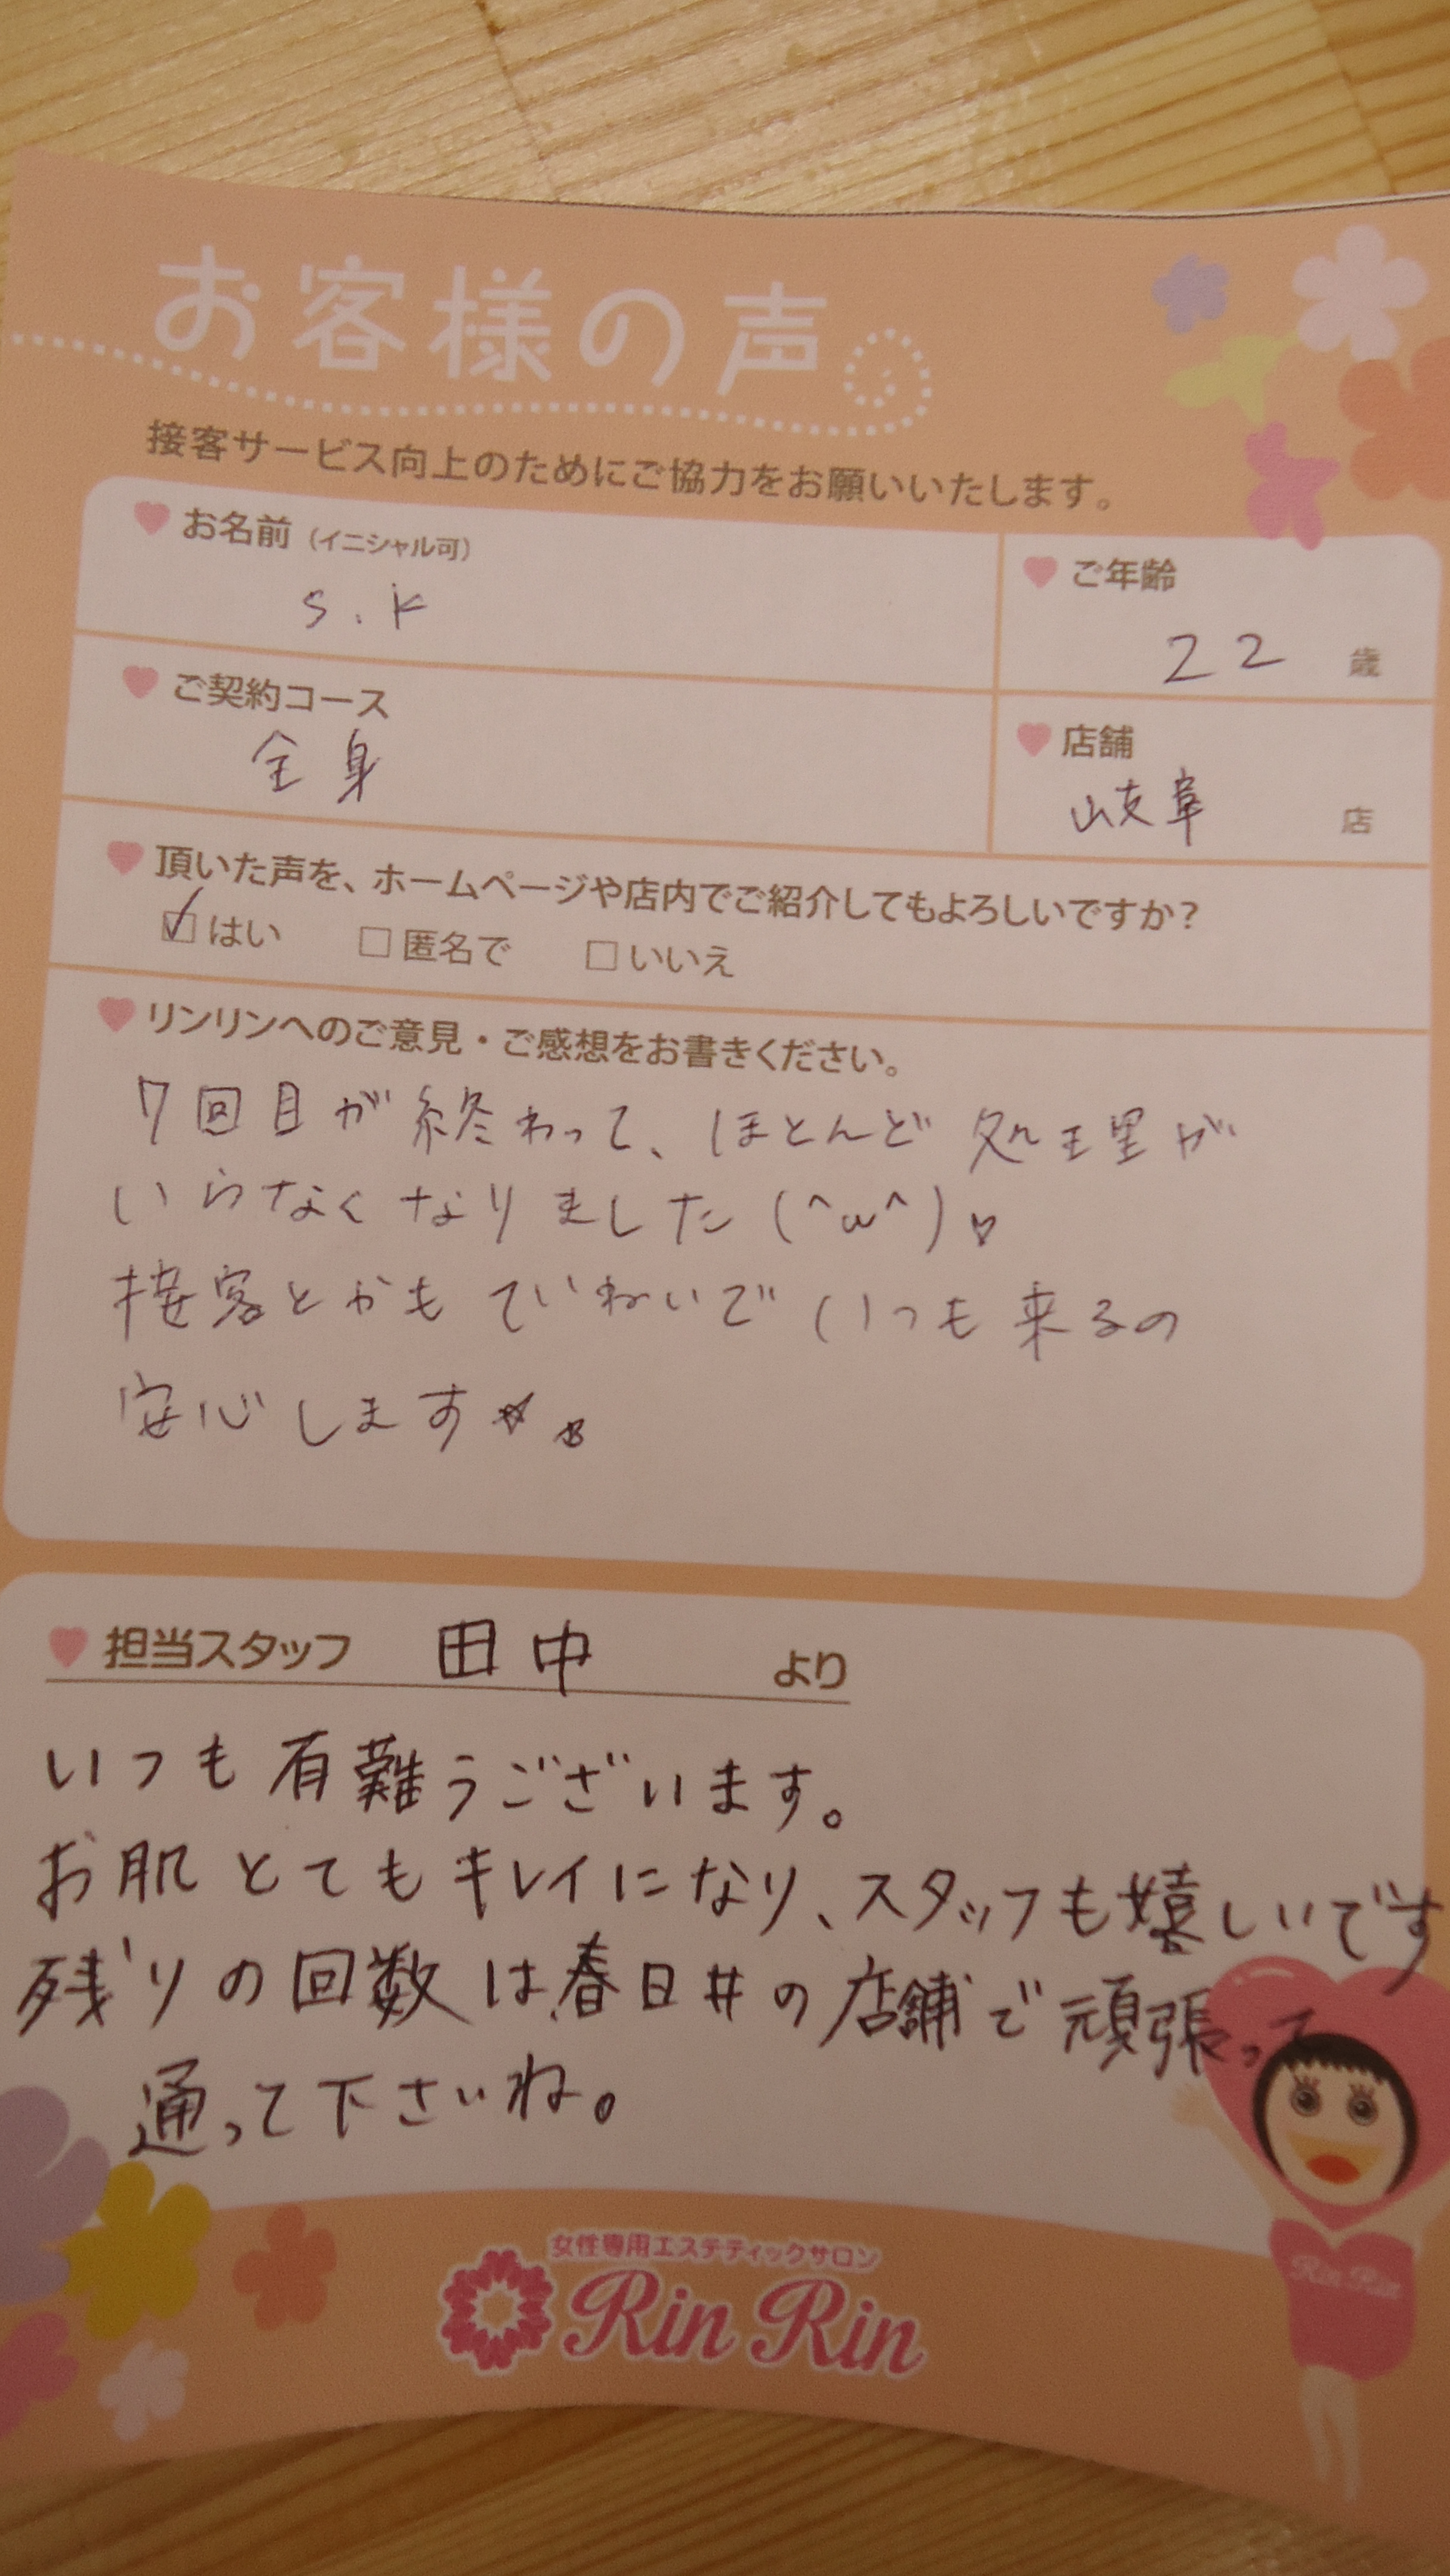 お客様の声
接客サービス向上のためにご協力をお願いいたします。
お名前（イニシャル可）
S.K
ご年齢
22 歳
ご契約コース
全身
店舗
岐阜 店
頂いた声を、ホームページや店内でご紹介してもよろしいですか？
☑はい □匿名で □いいえ
リンリンへのご意見・ご感想をお書きください。
7回目が終わって、ほとんど処理が
いらなくなりました(^ω^)♡
接客とかもていねいでいつも来るの
安心します☆。
担当スタッフ 田中 より
いつも有難うございます。
お肌とてもキレイになり、スタッフも嬉しいです
残りの回数は春日井の店舗で頑張って
通って下さいね。
女性専用エステティックサロン
Rin Rin
Rin Rin